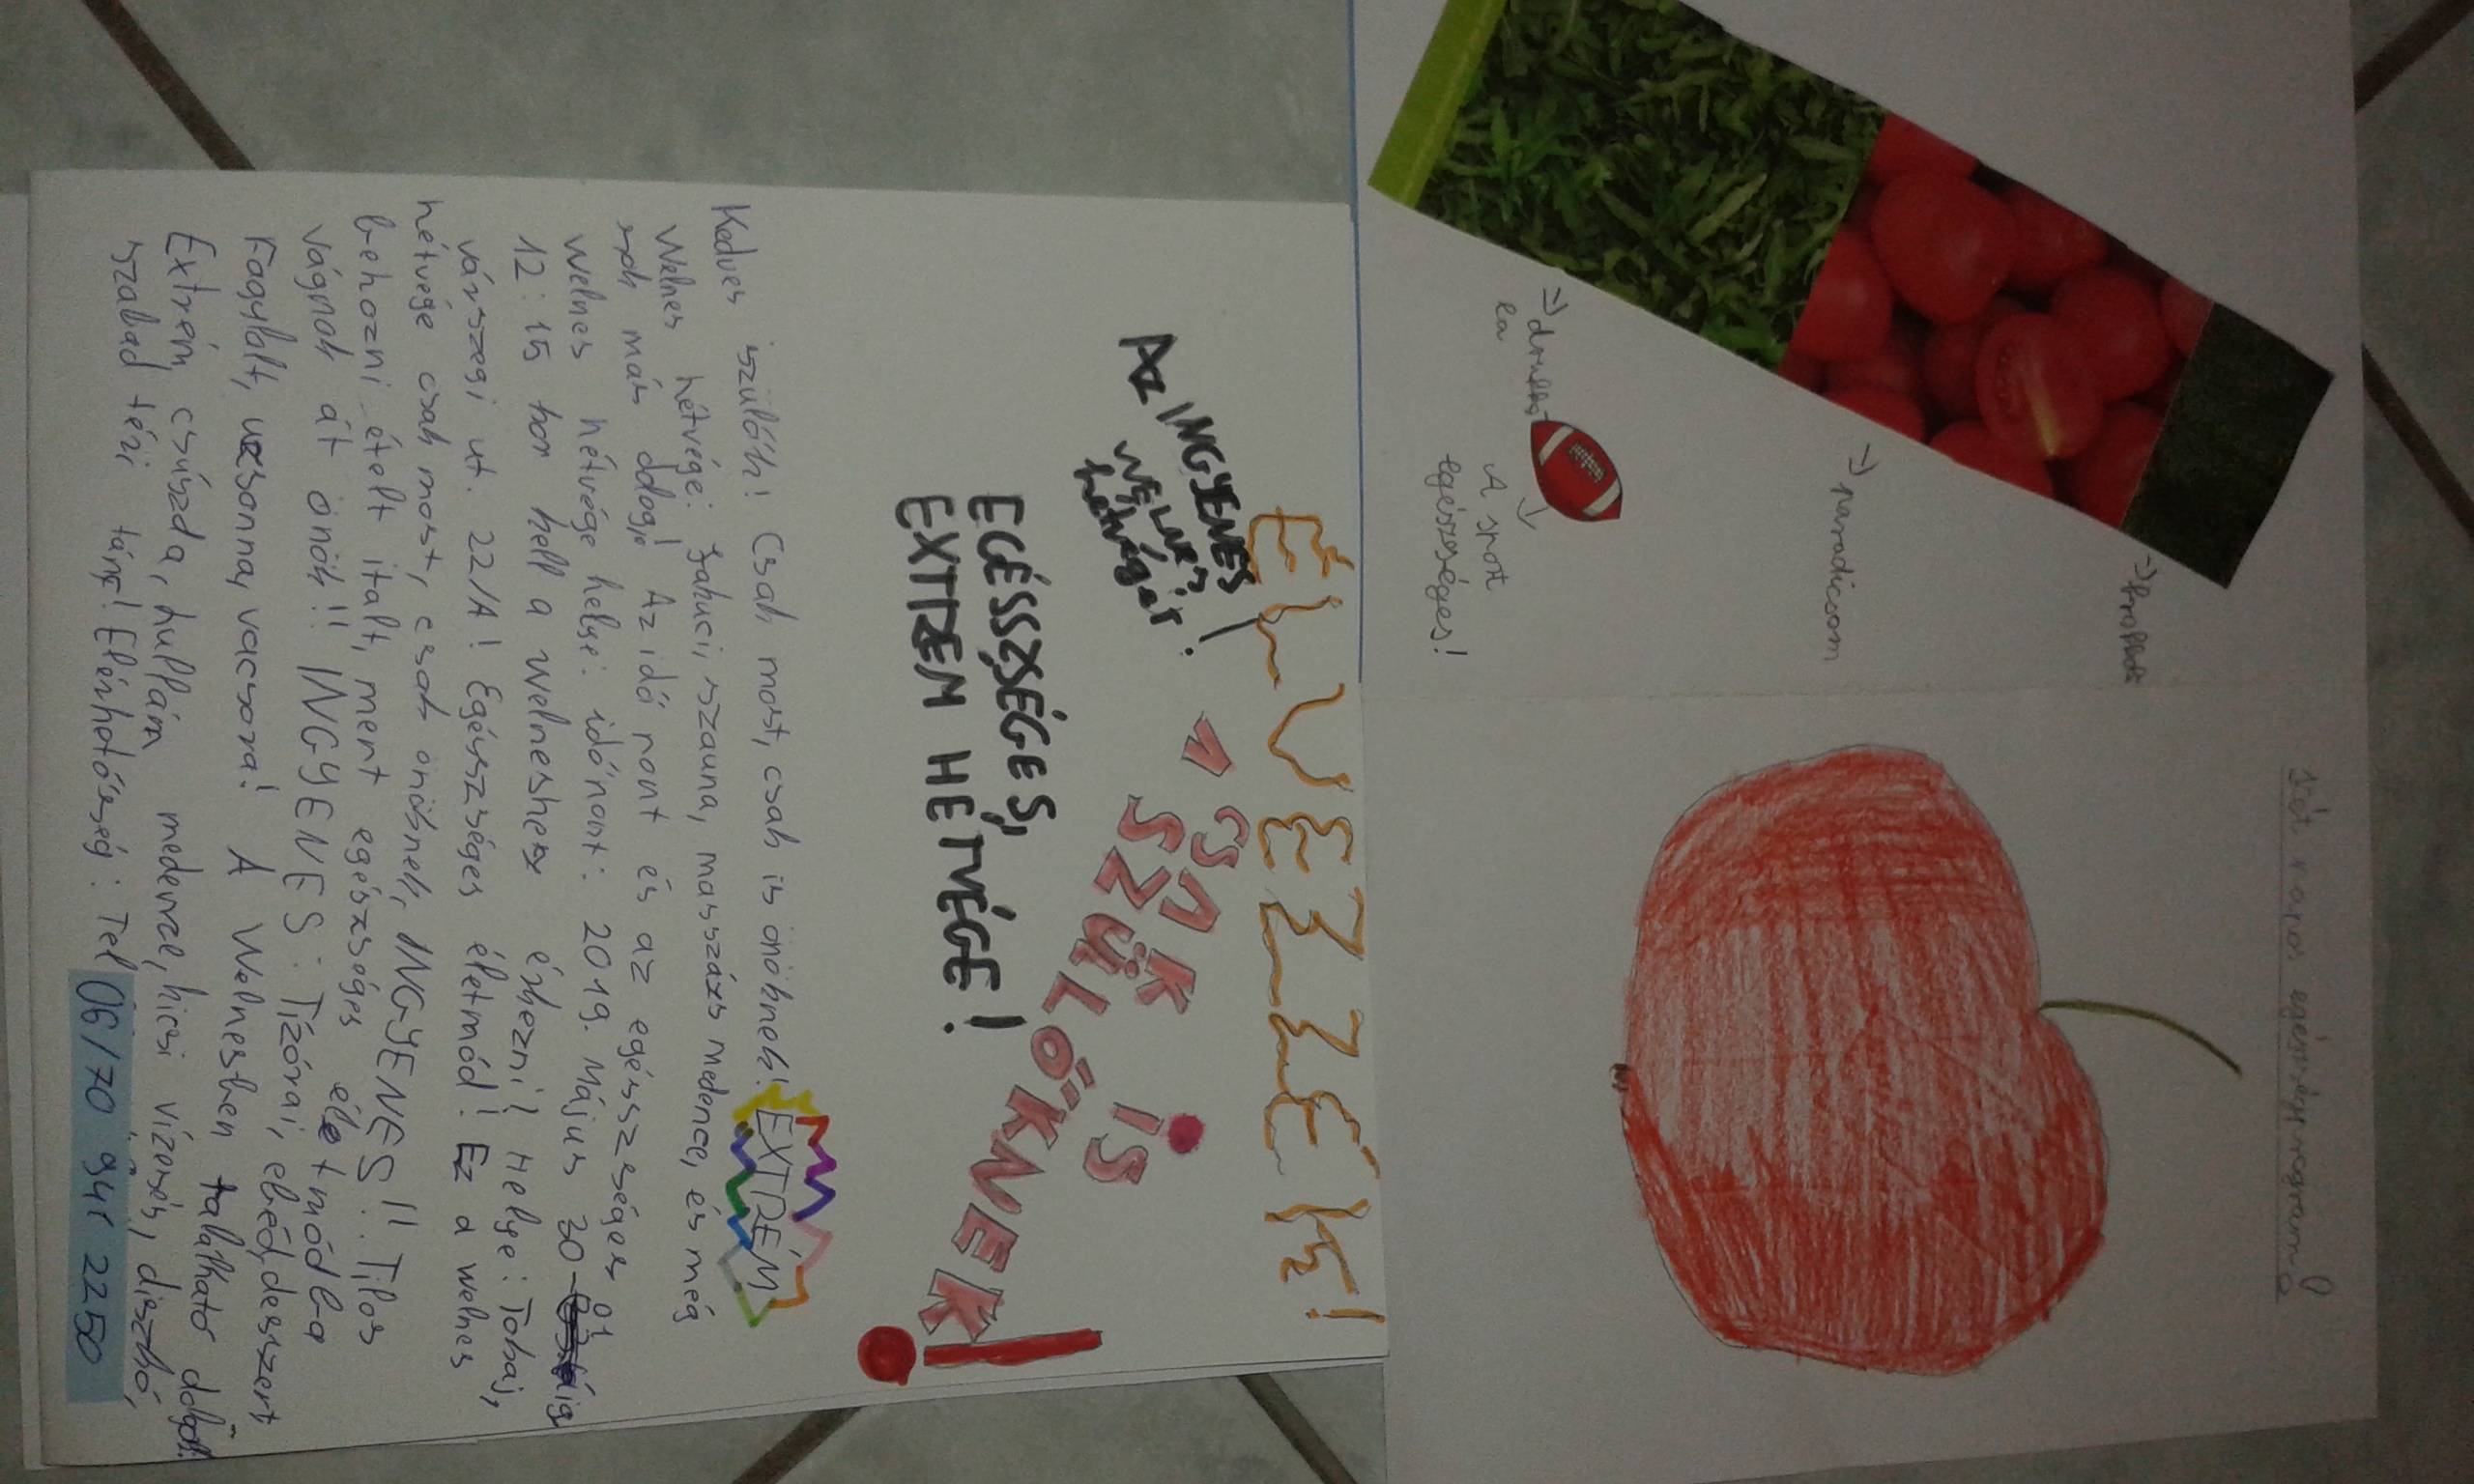 Két napos egészségprogram
→ brokkoli
→ paradicsom
→
A sport
egészséges!
ÉLVEZZÉK!
AZ INGYENES
WELNES
hétvégét!
CSAK IS
SZÜLŐKNEK!
EGÉSSZSÉGES,
EXTRÉM HETVÉGE!
Kedves szülők! Csak most, csak is önöknek! EXTRÉM
Welnes hétvége: Jakuci, szauna, masszázs medence, és még
sok más dolog! Az idő pont és az egésszséges
welnes hétvége helye: időpont: 2019. Május 30- 01 ig
12:15 kor kell a welneshez érkezni! Helye: Tokaj,
várszegi ut. 22/A! Egészséges életmód! Ez a welnes
hétvége csak most, csak önöknek, INGYENES!! Tilos
behozni ételt italt, mert egészséges életmódba
vágnak át önök!! INGYENES: Tízórai, ebéd, desszert
Fagylalt, uzsonna, vacsora! A Welnesben talalható dolgok:
Extrém csúszda, hullám medence, kicsi vízesés, diszkó,
szabad téri tánc! Elérhetőség: Tel 06/70 941 2250